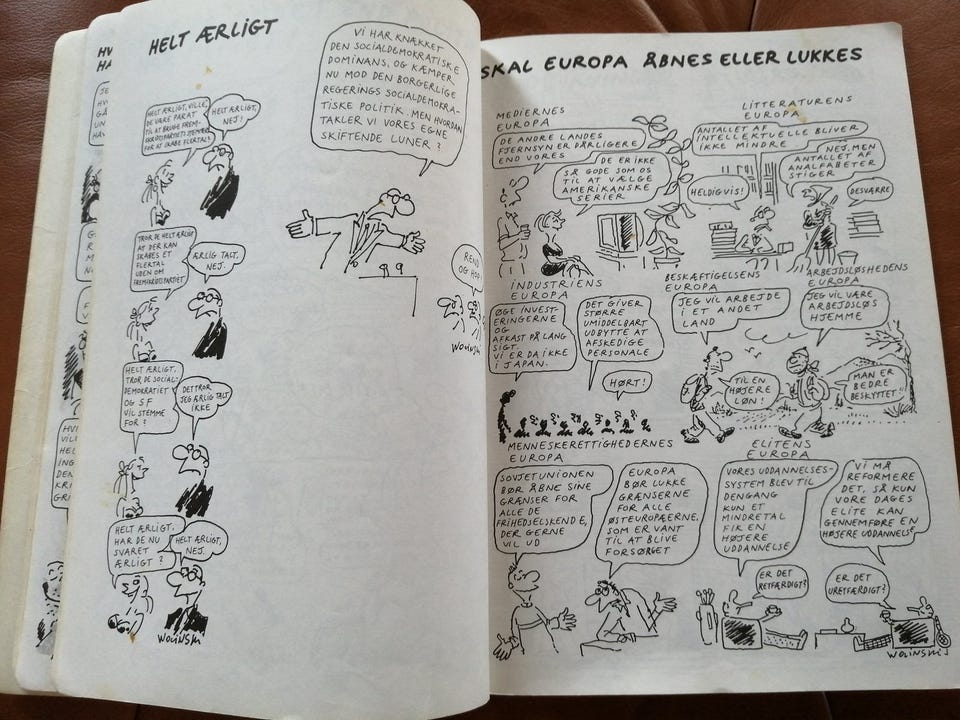 HELT ÆRLIGT
HELT ÆRLIGT, VILLE
DE VÆRE PARAT
TIL AT BRUGE FREM-
SKRIDSPARTIETS STEMMER
FOR AT SKABE FLERTAL?
HELT ÆRLIGT,
NEJ!
TROR DE HELT ÆRLIGT
AT DER KAN
SKABES ET
FLERTAL
UDEN OM
FREMSKRIDTSPARTIET
ÆRLIG TALT,
NEJ.
HELT ÆRLIGT,
TROR DE SOCIAL-
DEMOKRATIET
OG SF
VIL STEMME
FOR?
DET TROR
JEG ÆRLIG TALT
IKKE
HELT ÆRLIGT,
HAR DE NU
SVARET
ÆRLIGT?
HELT ÆRLIGT,
NEJ.
WOLINSKI
VI HAR KNÆKKET
DEN SOCIALDEMOKRATISKE
DOMINANS, OG KÆMPER
NU MOD DEN BORGERLIGE
REGERINGS SOCIALDEMOKRA-
TISKE POLITIK. MEN HVORDAN
TAKLER VI VORES EGNE
SKIFTENDE LUNER?
REND
OG HOP!
WOLINSKI
SKAL EUROPA ÅBNES ELLER LUKKES
MEDIERNES
EUROPA
DE ANDRE LANDES
FJERNSYN ER DÅRLIGERE
END VORES
DE ER IKKE
SÅ GODE SOM OS
TIL AT VÆLGE
AMERIKANSKE
SERIER
LITTERATURENS
EUROPA
ANTALLET AF
INTELLEKTUELLE BLIVER
IKKE MINDRE
NEJ, MEN
ANTALLET AF
ANALFABETER
STIGER
HELDIGVIS!
DESVÆRRE
INDUSTRIENS
EUROPA
ØGE INVEST-
ERINGERNE
OG
AFKAST PÅ LANG
SIGT.
VI ER DA IKKE
I JAPAN.
DET GIVER
STØRRE
UMIDDELBART
UDBYTTE AT
AFSKEDIGE
PERSONALE
HØRT!
BESKÆFTIGELSENS
EUROPA
JEG VIL ARBEJDE
I ET ANDET
LAND
TIL EN
HØJERE
LØN!
ARBEJDSLØSHEDENS
EUROPA
JEG VIL VÆRE
ARBEJDSLØS
HJEMME
MAN ER
BEDRE
BESKYTTET!
MENNESKERETTIGHEDERNES
EUROPA
SOVJETUNIONEN
BØR ÅBNE SINE
GRÆNSER FOR
ALLE DE
FRIHEDSELSKENDE,
DER GERNE
VIL UD
EUROPA
BØR LUKKE
GRÆNSERNE
FOR ALLE
ØSTEUROPÆERNE,
SOM ER VANT
TIL AT BLIVE
FORSØRGET
ELITENS
EUROPA
VORES UDDANNELSES-
SYSTEM BLEV TIL
DENGANG
KUN ET
MINDRETAL
FIK EN
HØJERE
UDDANNELSE
VI MÅ
REFORMERE
DET, SÅ KUN
VORE DAGES
ELITE KAN
GENNEMFØRE EN
HØJERE UDDANNELSE
ER DET
RETFÆRDIGT?
ER DET
URETFÆRDIGT?
WOLINSKI